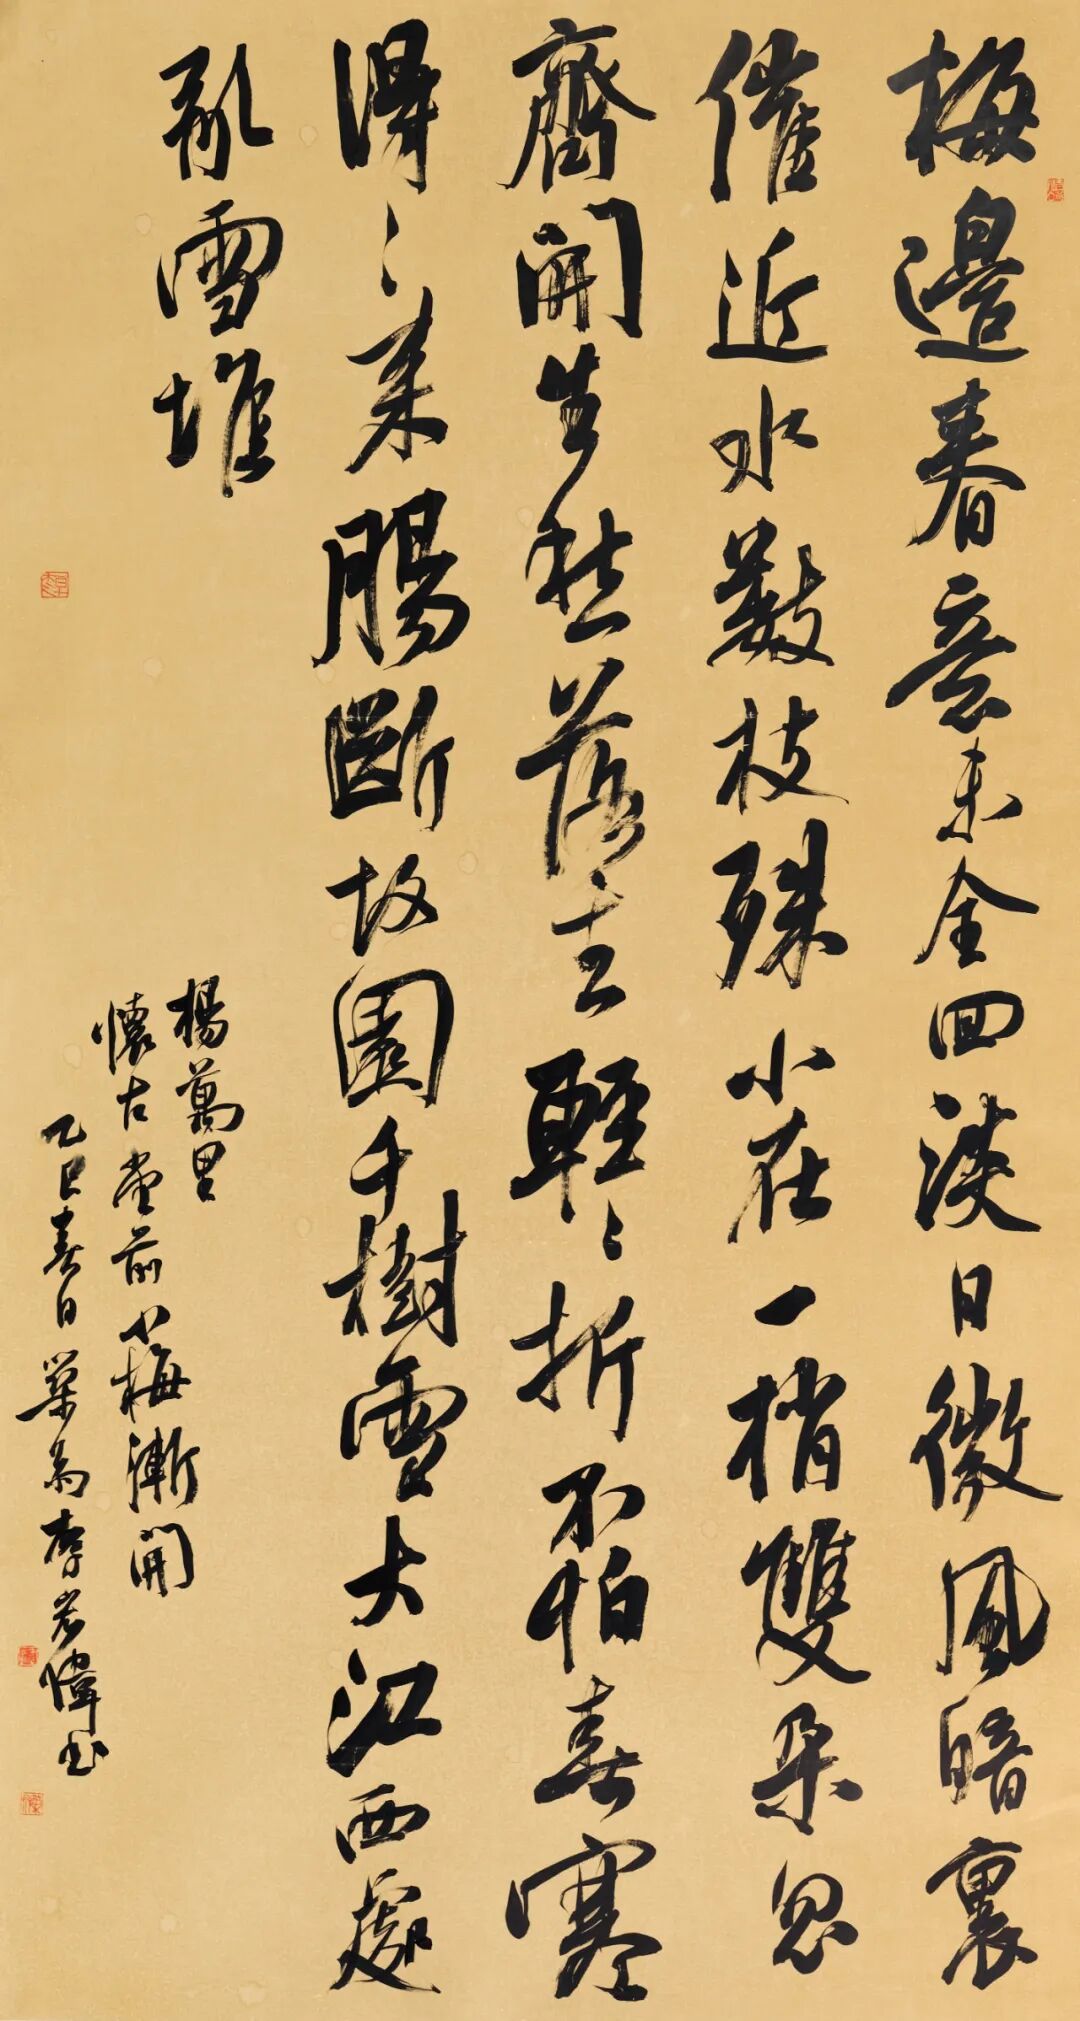 梅邊春意未全囬淡日微風暗裏
催近水數枝殊小在一梢雙朵忽
齊開生愁落去輕〻折不怕春寒
得〻來腸斷故園千樹雪大江西處
亂雪堆
楊萬里
懷古堂前小梅漸開
乙巳春日李偉書